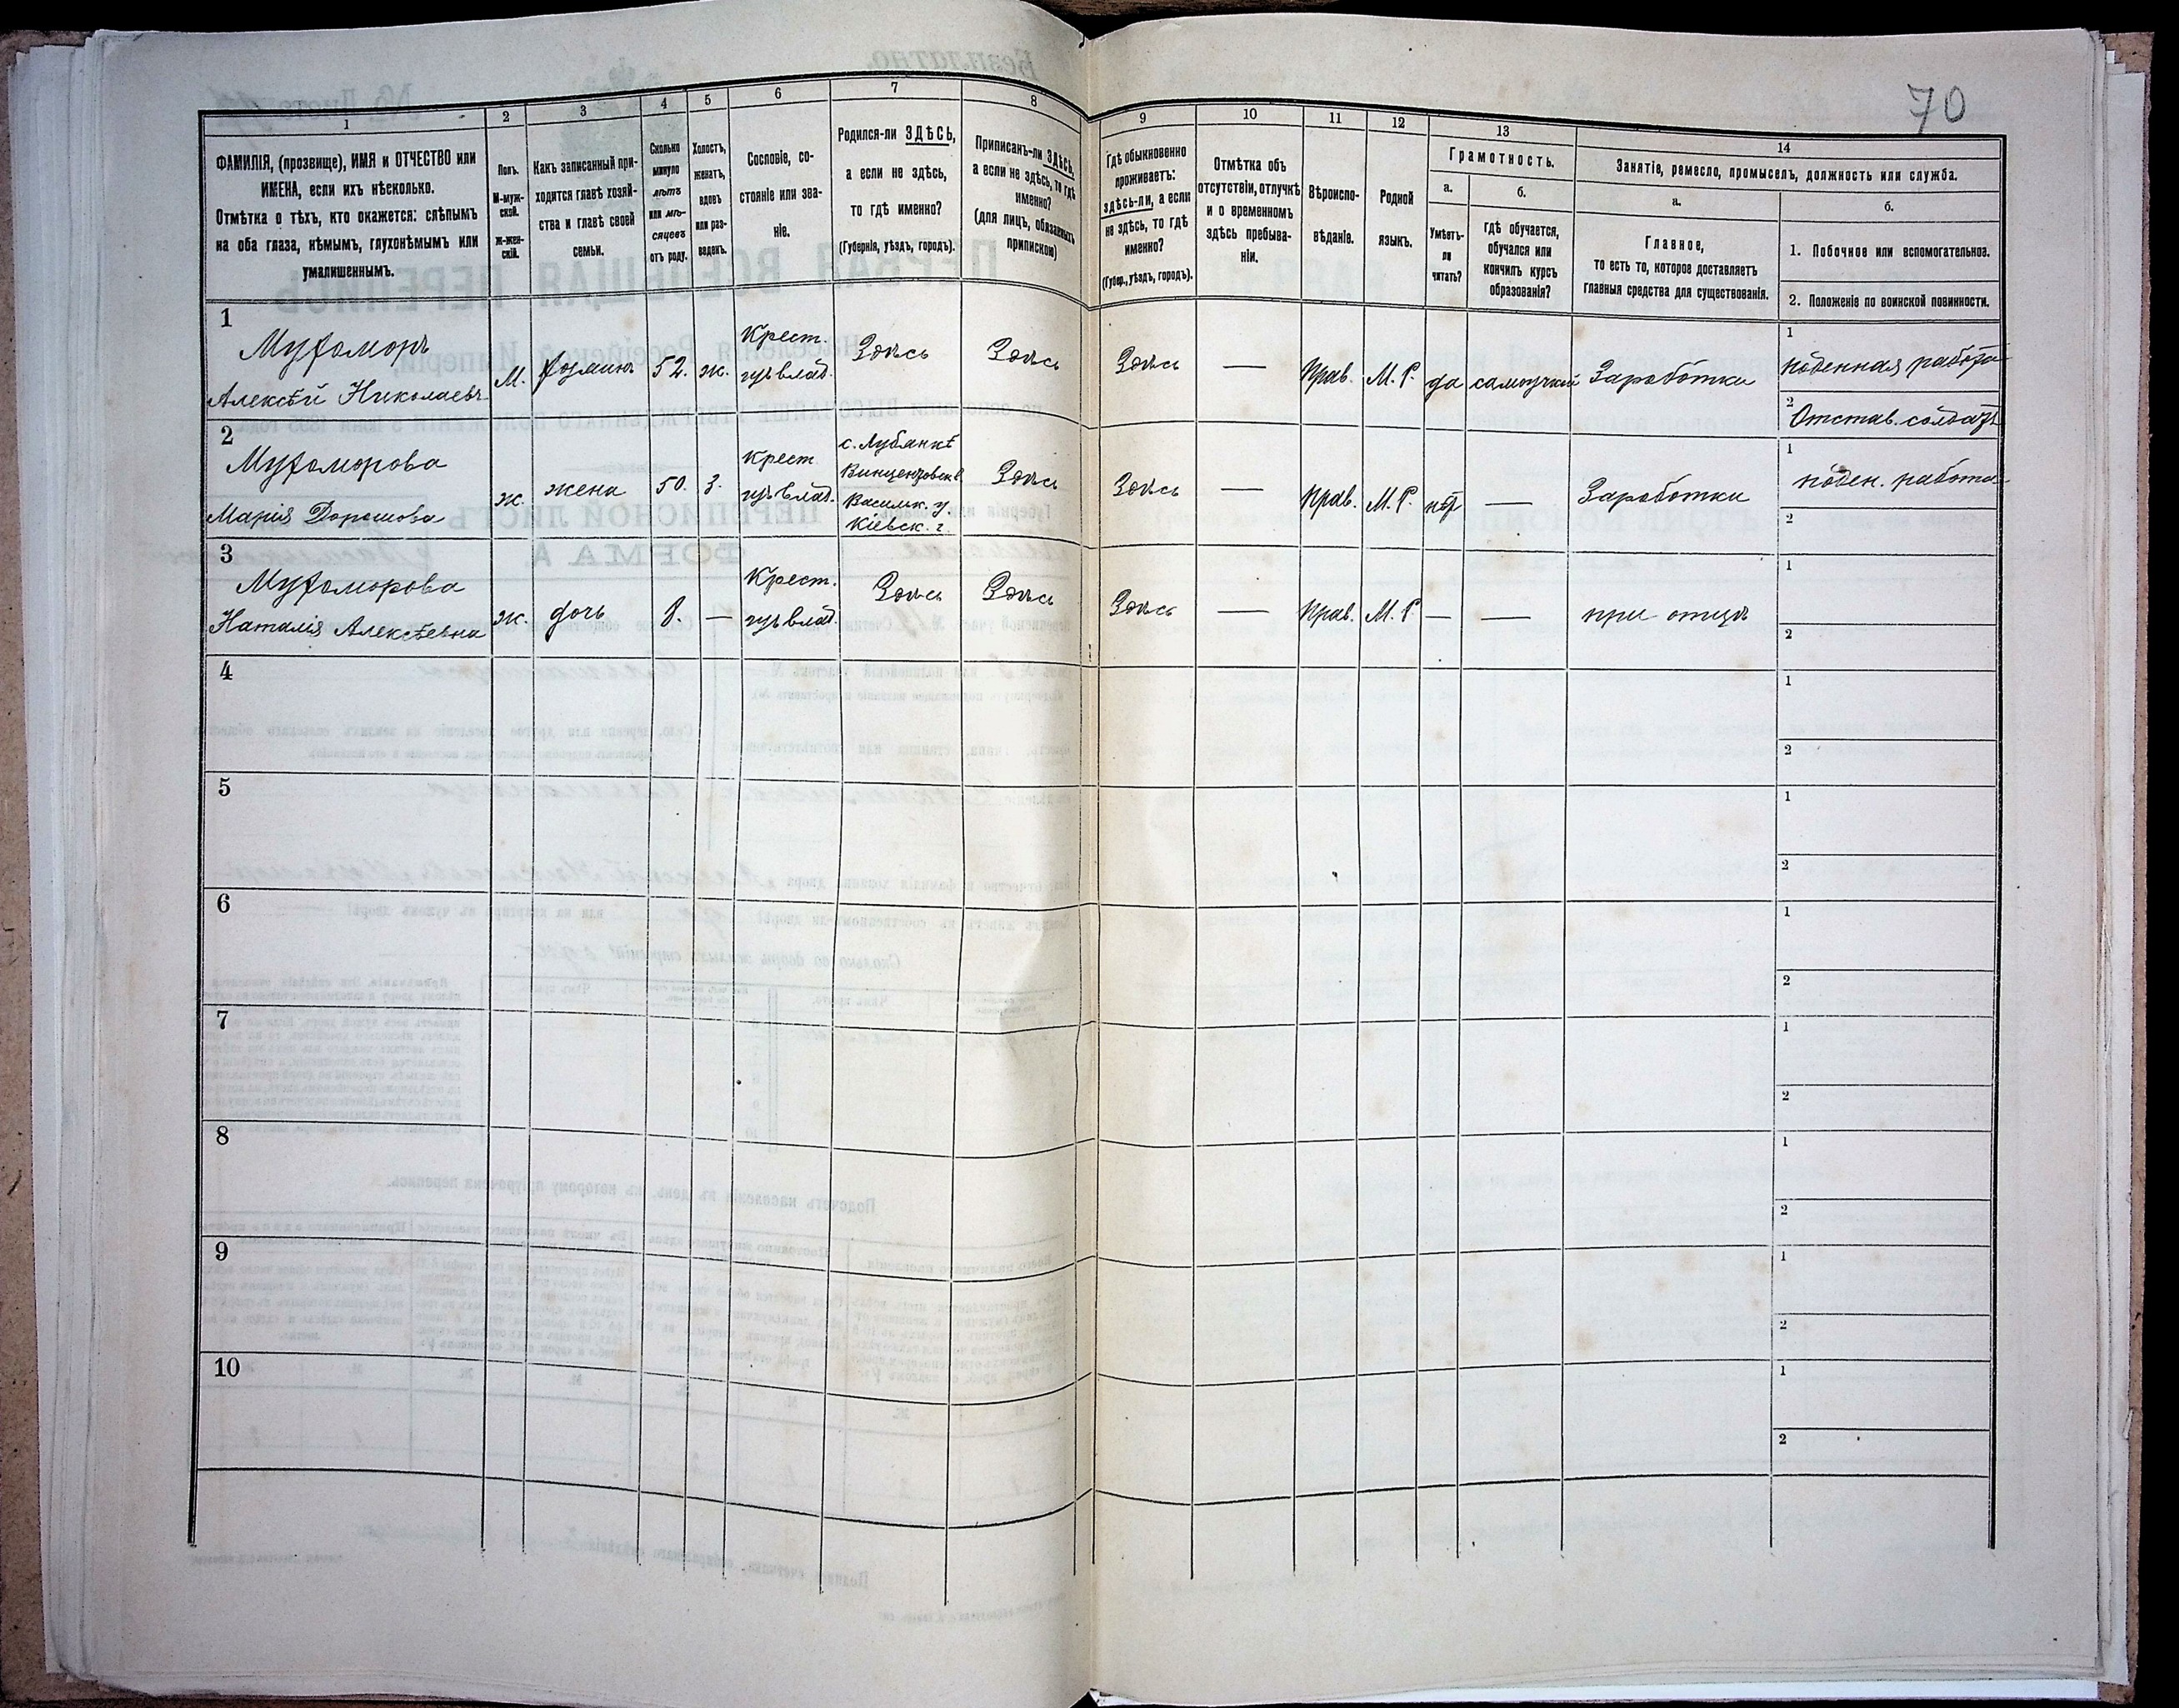 70
1
2
3
4
5
6
7
8
9
10
11
12
13
14
ФАМИЛІЯ, (прозвище), ИМЯ и ОТЧЕСТВО или
ИМЕНА, если ихъ нѣсколько.
Отмѣтка о тѣхъ, кто окажется: слѣпымъ
на оба глаза, нѣмымъ, глухонѣмымъ или
умалишеннымъ.
Полъ.
М-муж-
ской.
Ж-жен-
скій.
Какъ записанный при-
ходится главѣ хозяй-
ства и главѣ своей
семьи.
Сколько
минуло
лѣтъ
или мѣ-
сяцевъ
отъ роду.
Холостъ,
женатъ,
вдовъ
или раз-
веденъ.
Сословіе, со-
стояніе или зва-
ніе.
Родился-ли ЗДѢСЬ,
а если не здѣсь,
то гдѣ именно?
(Губернія, уѣздъ, городъ).
Приписанъ-ли ЗДѢСЬ,
а если не здѣсь, то гдѣ
именно?
(для лицъ, обязанныхъ
припискою)
Гдѣ обыкновенно
проживаетъ:
здѣсь-ли, а если
не здѣсь, то гдѣ
именно?
(Губер., уѣздъ, городъ).
Отмѣтка объ
отсутствіи, отлучкѣ
и о временномъ
здѣсь пребыва-
ніи.
Вѣроиспо-
вѣданіе.
Родной
языкъ.
Грамотность.
а.
Умѣетъ-
ли
читать?
б.
гдѣ обучается,
обучался или
кончилъ курсъ
образованія?
Занятіе, ремесло, промыселъ, должность или служба.
а.
Главное,
то есть то, которое доставляетъ
главныя средства для существованія.
б.
1. Побочное или вспомогательное.
2. Положеніе по воинской повинности.
1
Мухоморъ
Алексѣй Николаевъ
М.
хозяинъ
52.
ж.
Крест.
Здѣсь
Здѣсь
Здѣсь
—
Прав.
М. Р.
да
самоучкой
Заработки
1
поденная работа
2
Отстав. солдатъ
2
Мухоморова
Марія Дорошова
ж.
жена
50.
з.
Крест
с. Лубянкѣ
Васильк. у.
Кіевск. г.
Здѣсь
Здѣсь
—
Прав.
М. Р.
нѣт
—
Заработки
1
поден. работа
2
3
Мухоморова
Наталія Алексѣевна
ж.
дочь
8.
—
Крест.
Здѣсь
Здѣсь
Здѣсь
—
Прав.
М. Р.
—
—
при отцѣ
1
2
4
1
2
5
1
2
6
1
2
7
1
2
8
1
2
9
1
2
10
1
2